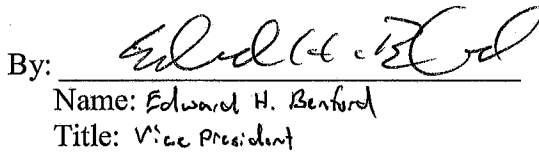 By: Edward H. Benford
Name: Edward H. Benford
Title: Vice President